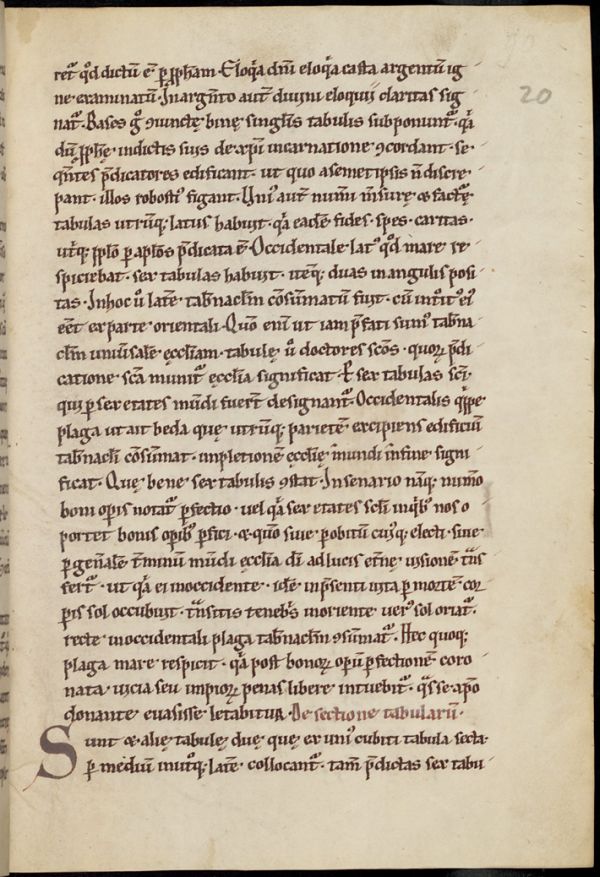 ret᷑ qd̄ dictū ē ꝑ ꝓph̄am. Eloq̄a dn̄i eloq̄a casta argentū ig
20
ne examinatū. In argn̄to aut̄ diuini eloquij claritas sig
nat᷑. Bases g̊ ꝯiunctę binę singl̄is tabulis subponunt᷑. qa
dū ꝓph̄ę indictis suis de xp̄i incarnatione ꝯcordant. se
qn̄tes p̄dicatores edificant. ut quo a semetipsis n̄ discre
pant. illos robosti᷒ figant. Uni᷒ aut̄ num̄i m̄surę ⁊ factu᷑ę
tabulas utrūq; latus habuit. qa eadē fides. spes. caritas.
utq; pplo ꝑ aplōs p̄dicata ē. Occidentale lat᷒ qd̄ mare re
spiciebat. sex tabulas habuit. iteq; duas in angulis posi
tas. Inhoc ů lat̄e tab̄nacl̄m cōsūmatum fuit. cū int̊it᷒ ei᷒
eēt ex parte orientali. Quō enī ut iam p̄fati sum᷒ tab̄na
cl̄m uniūsalē ęccl̄iam. tabulę ů doctores sc̄os. quoꝝ p̄di
catione sc̄a munit᷑ ęccl̄ia significat. Et sex tabulas sc̄i.
qui ꝑ sex etates mūdi fuer̄t designant᷑. Occidentalis qippe
plaga ut ait beda quę utrūq; parietē excipiens edificiū
tab̄nacl̄i cōsūmat. impletionē ęccl̄ię ī mundi īn fine signi
ficat. Quę bene sex tabulis ꝯstat. In senario naq; num̄o
boni oꝑis notat᷑ ꝑfectio. uel qa sex etates scl̄i inqib᷒ nos o
portet bonis oꝑib᷒ ꝑfici. ⁊ quō siue ꝑ obitū cui᷒q; electi. siue
ꝑ gen̄alē t̄minū mūdi ęccl̄ia dī ad lucis et̄nę uisionē tns
fert᷑. ut qa ei in occidente. idē inp̄senti uita ꝑ mortē cor
ꝑis sol occubuit. tnsitis teneb̄s moriente uer᷒ sol oriat᷑.
recte in occidentali plaga tab̄nacl̄m ꝯsūmat᷑. Hec quoq;
plaga mare respicit. qa post bonoꝝ opū ꝑfectionē coro
nata uicia seu impioꝝ penas libere intuebit᷑. qas se xp̄o
donante euasisse letabitur. De sectione tabularū.
Sunt ⁊ alię tabulę duę. quę ex uni᷒ cubiti tabula secta.
ꝑ mediū inutq; lat̄e collocant᷑. tam̄ p̄dictas sex tabu